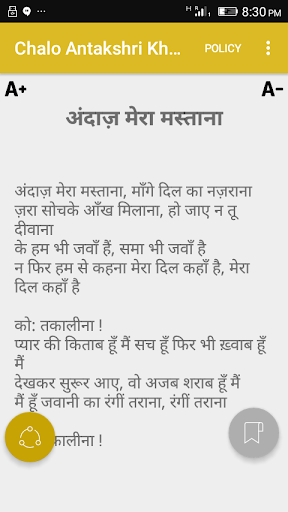 8:30 PM
Chalo Antakshri Kh... POLICY
A+ A-
अंदाज़ मेरा मस्ताना
अंदाज़ मेरा मस्ताना, माँगे दिल का नज़राना
ज़रा सोचके आँख मिलाना, हो जाए न तू
दीवाना
के हम भी जवाँ हैं, समा भी जवाँ है
न फिर हम से कहना मेरा दिल कहाँ है, मेरा
दिल कहाँ है
को: तकालीना !
प्यार की किताब हूँ मैं सच हूँ फिर भी ख़्वाब हूँ
मैं
देखकर सुरूर आए, वो अजब शराब हूँ मैं
मैं हूँ जवानी का रंगीं तराना, रंगीं तराना
तकालीना !